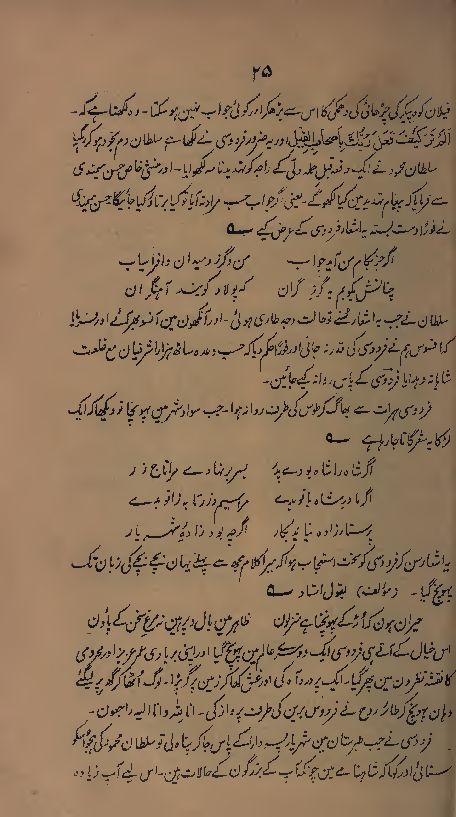 ۲۵
فیلان کوہ پیکر کی چڑھائی کی دھمکی کا اس سے بڑھکر اور کوئی جواب نہین ہو سکتا۔ وہ لکھتا ہے کہ۔
اَلَمْ تَرَ كَيْفَ فَعَلَ رَبُّكَ بِاَصْحَابِ الْفِيْلِ اور یہ ضرور فردوسی نے لکھا ہے سلطان دم بخود ہو کر رہگیا
سلطان محمود نے ایک دفعہ قبل حملہ دلی کے راجہ کو تہدید نامہ لکھوایا۔ اور منشی خاص حسن میمندی
سے فرمایا کہ پیغام تہدید مین کیا لکھو گے۔ یعنی اگر جواب حسب مراد نہ آیا تو کیا برتاؤ کیا جائیگا حسن میمندی
نے فوراً دست بستہ یہ اشعار فردوسی کے عرض کیے
اگر جز بکام من آید جواب من و گرز و میدان و افراسیاب
چنانش بکوبم بہ گرز گران کہ پولاد کوبند آہنگران
سلطان نے جب یہ اشعار سُنے تو حالت وجد طاری ہوئی۔ اور آنکھون مین آنسو بھر آئے اور فرمایا
کہ افسوس ہم نے فردوسی کی قدر نہ جانی اور فوراً حکم دیا کہ حسب وعدہ ساٹھ ہزار اشرفیان مع خلعت
شاہانہ و ہدایا فردوسی کے پاس روانہ کیے جائین۔
فردوسی ہرات سے بھاگ کر طوس کی طرف روانہ ہوا۔ جب سواد شہر مین پہونچا تو دیکھا کہ ایک
لڑکا یہ شعر گاتا جا رہا ہے
اگر شاہ را شاہ بودے پدر بسر بر نہادے مرا تاج زر
اگر مادر شاہ بانو بدے مرا سیم و زر تا بہ زانو بدے
پرستار زادہ نیاید بکار اگرچہ بود زادۂ شہریار
یہ اشعار سن کر فردوسی کو سخت استعجاب ہوا کہ میرا کلام مجھ سے پہلے یہان بچے بچے کی زبان تک
پہونچ گیا۔ (مؤلف) بقول استاد
حیران ہون کہ اُڑ کے پہونچتا ہے منزلون ظاہر مین بال و پر ہین نہ مرغ سخن کے پاؤن
اس خیال کے آتے ہی فردوسی ایک دوسرے عالم مین پہونچ گیا اور اپنی بربادی عمر عزیز اور محرومی
کا نقشہ نظرون مین پھر گیا۔ ایک پُر درد آہ کی اور غش کھا کر زمین پر گر پڑا۔ لوگ اُٹھا کر گھر پر لیگئے
وہان پہونچ کر طائر روح نے فردوس برین کی طرف پرواز کی۔ انا للہ وانا الیہ راجعون۔
فردوسی نے جب طبرستان مین شہریار کے پاس جا کر پناہ لی تو سلطان محمود کی ہجو اسکو
سنائی اور کہا کہ شاہنامے مین چونکہ آپ کے بزرگون کے حالات ہین۔ اس لیے آپ زیادہ